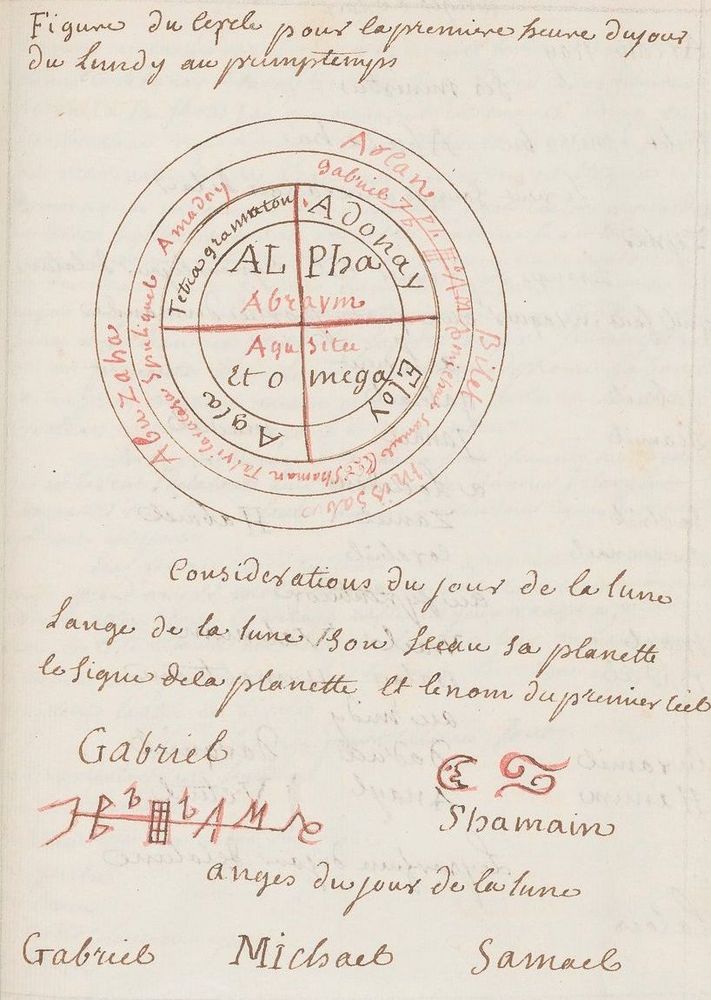 Figure du Cercle pour la premiere heure du jour
du Lundy au primptemps
Arlan
Gabriel
Amadoy
Tetra grammaton
Adonay
ALPha
Abraym
Agusitu
Et o mega
Agla
Eloy
Bilet
Missabu
Abu Zaha
michael samael
Shaman Tatvi laracasa Spuliguel
Considerations du jour de la lune
Lange de la lune Son Sceau Sa planette
le Signe dela planette Et le nom du premier Ciel
Gabriel
Shamain
anges du jour de la lune
Gabriel Michael Samael